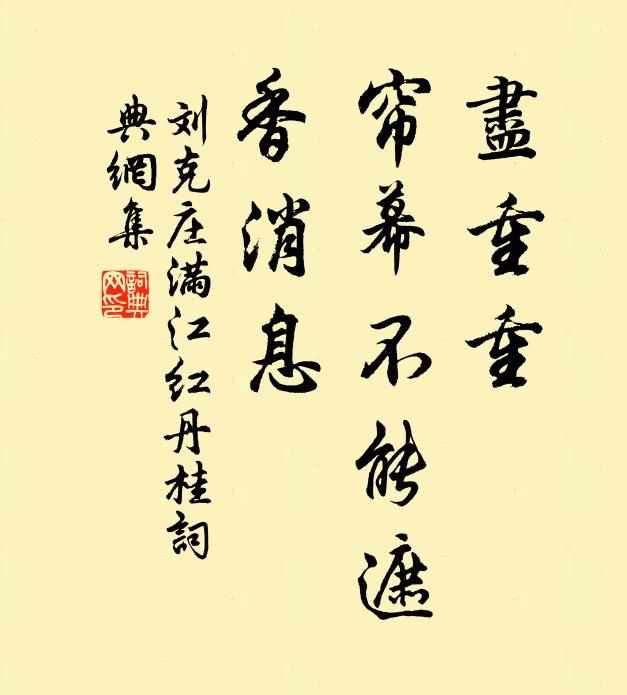 盡重重
帘幕不能遮
香消息
刘克庄满江红丹桂詞
典網集
詞典網印